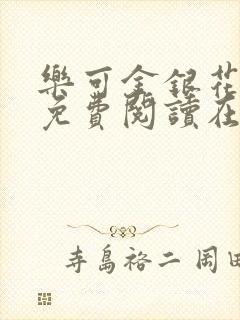 樂可金銀花
免費閱讀在
寺島裕二 岡田